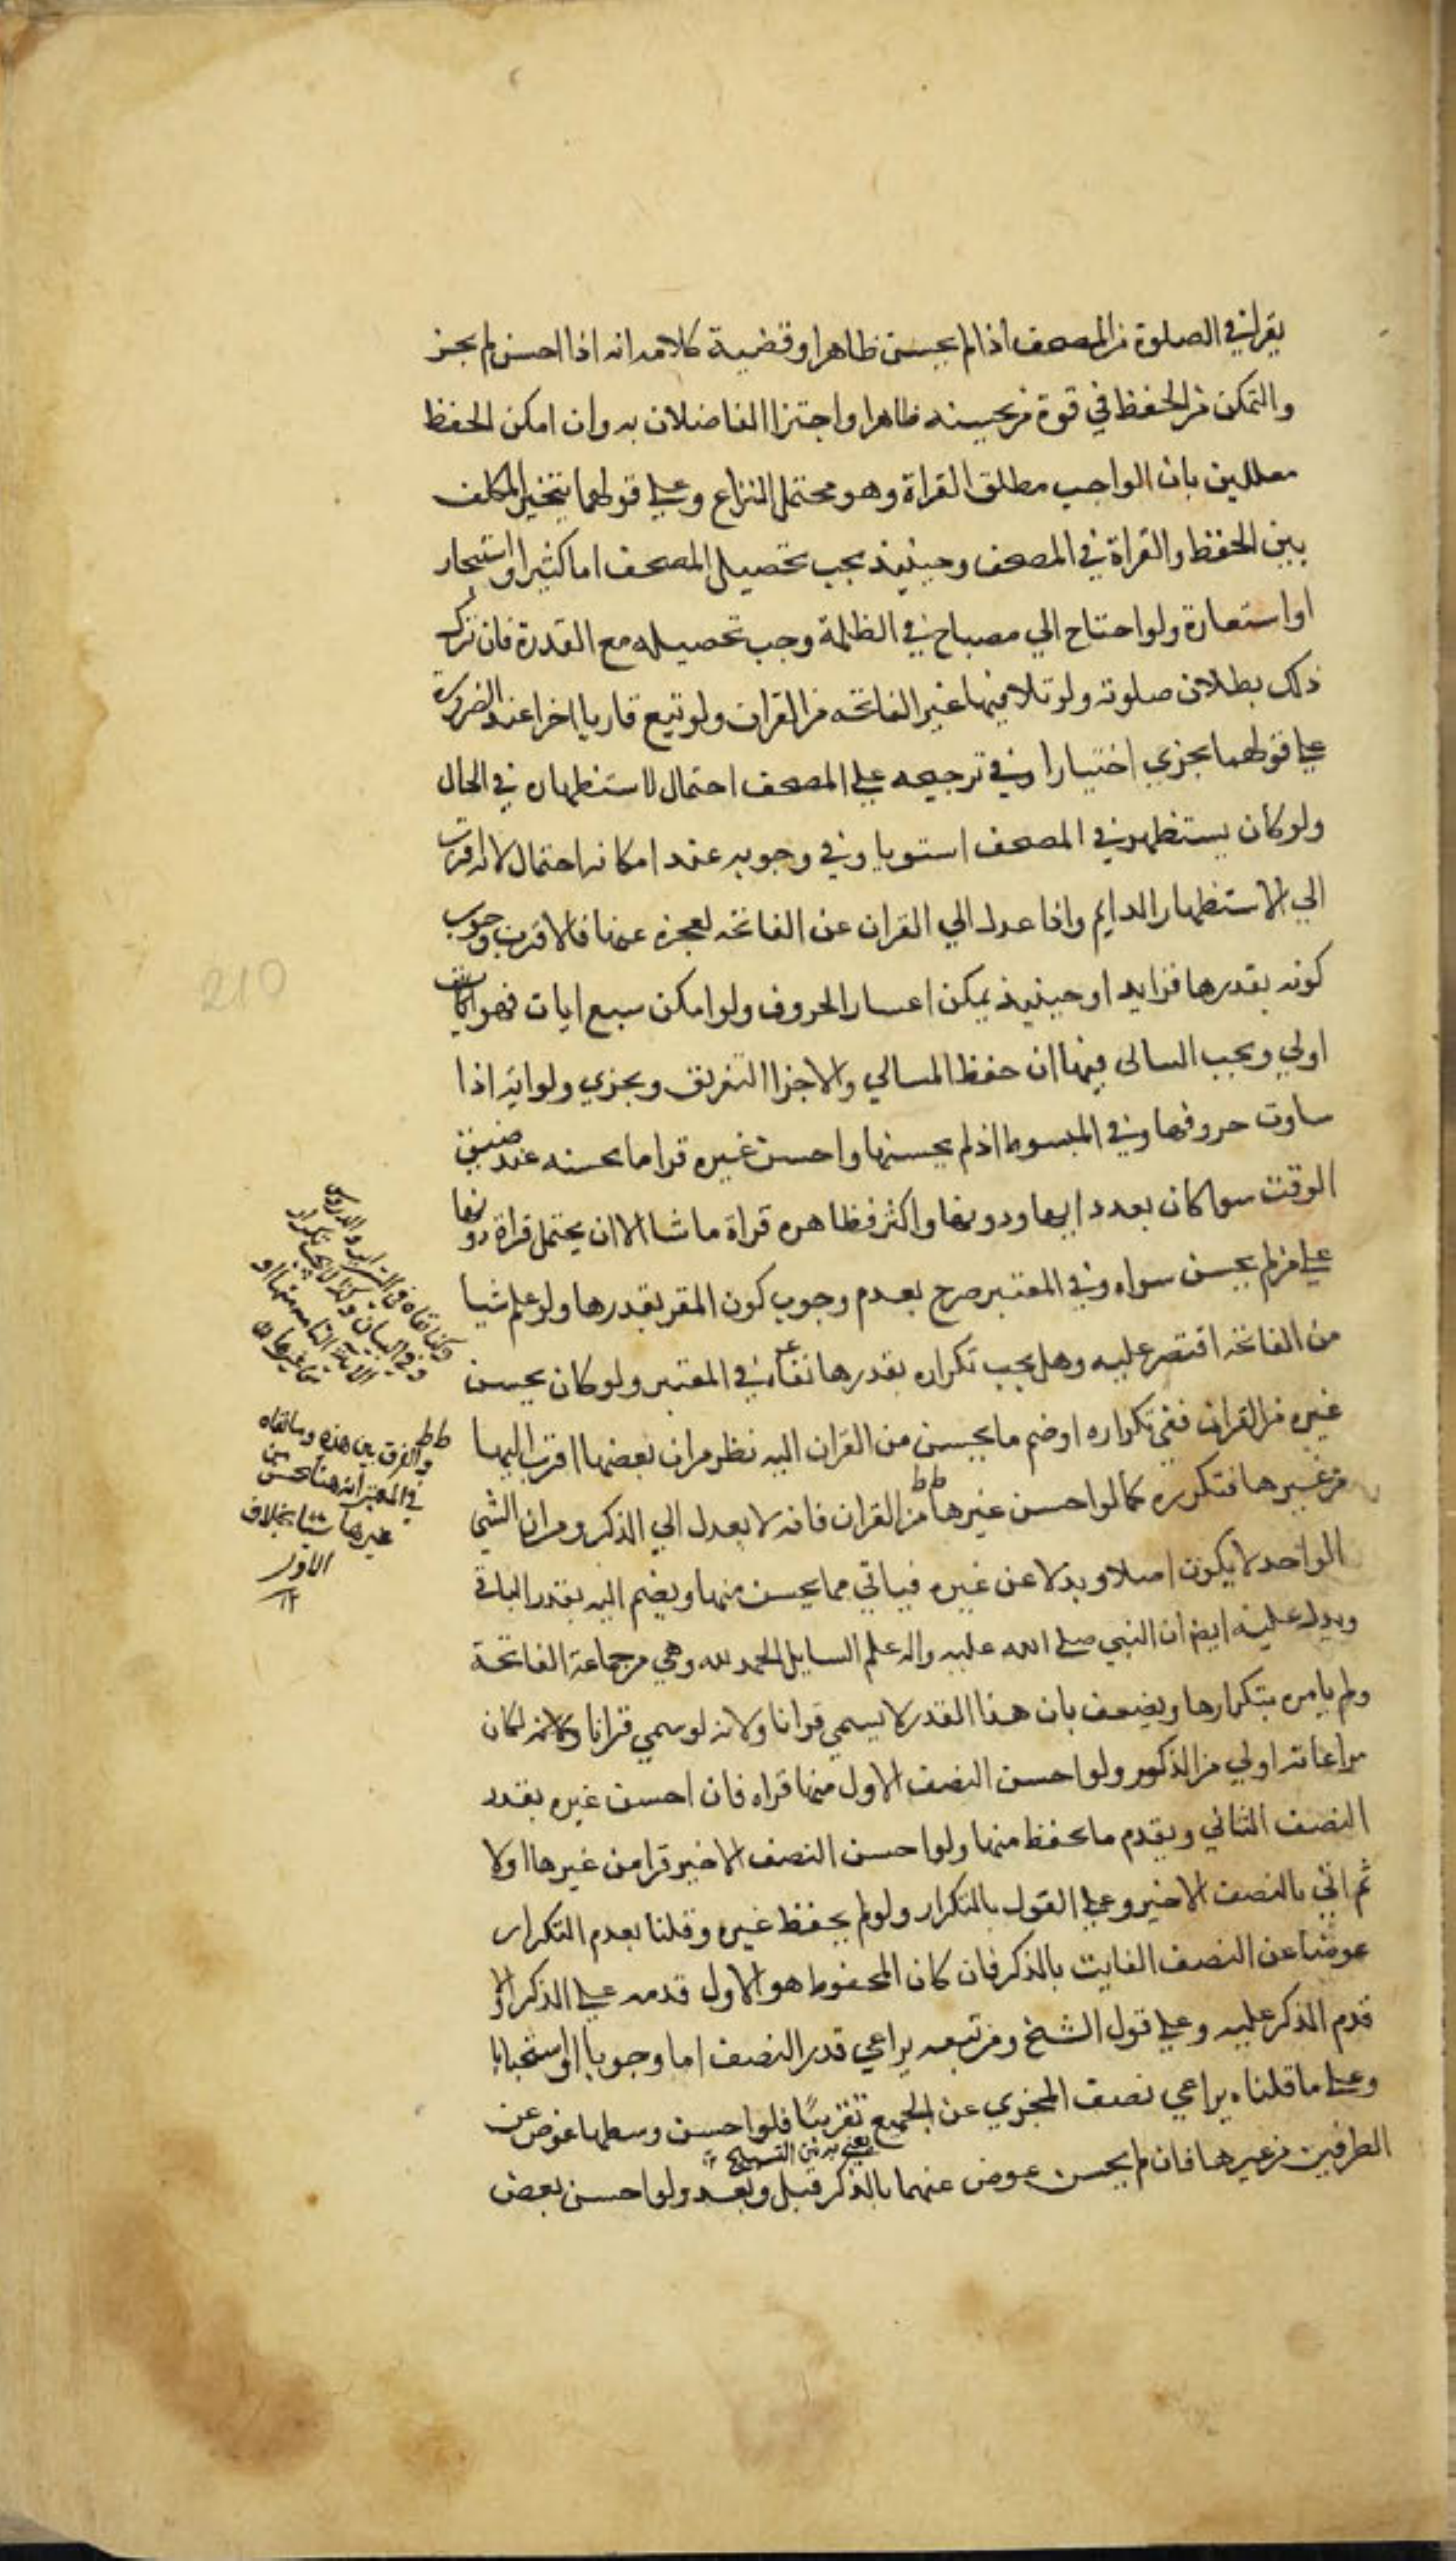 يقرا في الصلوة من المصحف اذا لم يحسن ظاهرا وقضية كلامه انه اذا احسن لم يجز
والتمكن من الحفظ في قوة من يحسنه ظاهرا واجتزا الفاضلان به وان امكن الحفظ
معللين بان الواجب مطلق القراة وهو محتمل النزاع وعلي قولهما يتخير المكلف
بين الحفظ والقراة في المصحف وحينئذ يجب تحصيل المصحف اما كثيرا او استيجار
او استعارة ولو احتاج الي مصباح في الظلمة وجب تحصيله مع القدرة فان ترك
ذلك بطلان صلوته ولو تلا فيها غير الفاتحه من القران ولو تتبع قاريا اخرا عند الضرورة
علي قولهما يجزي اختيارا وفي ترجيحه علي المصحف احتمال لاستنظهاره في الحال
ولو كان يستظهر في المصحف استويا وفي وجوبه عند امكانه احتمال لانه اقرب
الي الاستظهار الدايم واذا عدل الي القران عن الفاتحه لعجزه عنها فالاقرب وجوب
كونه بقدرها فزايد او حينيذ يمكن اعسار الحروف ولو امكن سبع ايات فهو
اولي ويجب السالى فيها ان حفظ المسالي والا جزا التفريق ويجزي ولو ايه اذا
ساوت حروفها وفي المبسوط اذ لم يحسنها واحسن غيره قرا ما يحسنه عند ضيق
الوقت سوا كان بعدد ايها ودونها واكثر فظاهره قراة ما شا الا ان يحتمل قراة دونها
علي من لم يحسن سواه وفي المعتبر صرح بعدم وجوب كون المقر بقدرها ولو علم شيا
من الفاتحه اقتصر عليه وهل يجب تكراره بقدرها نفاه في المعتبر ولو كان يحسن
غيره من القران ففي تكراره او ضم ما يحسن من القران اليه نظر من ان بعضها اقرب اليها
من غيرها فتكرره كما لو احسن غيرها من القران فانه لا يعدل الي الذكر ومن ان الشي
الواحد لا يكون اصلا وبدلا عن غيره فياتي مما يحسن منها ويضم اليه بقدر الباقي
ويدل عليه ايضا ان النبي صلي الله عليه واله علم السايل الحمد لله وهي من جماعة الفاتحة
ولم يامره بتكرارها ويضعف بان هذا القدر لا يسمي قرانا ولانه لو سمي قرانا لكان
مراعاته اولي من الذكور ولو احسن النصف الاول منها قراه فان احسن غيره بقدر
النصف الثاني ويقدم ما يحفظ منها ولو احسن النصف الاخير قرا من غيرها اولا
ثم اتي بالنصف الاخير وعلي القول بالتكرار ولو لم يحفظ غيره وقلنا بعدم التكرار
عوضنا عن النصف الفايت بالذكر فان كان المحفوظ هو الاول قدمه علي الذكر والا
قدم الذكر عليه وعلي قول الشيخ ومن تبعه يراعي قدر النصف اما وجوبا او استحبابا
وعلي ما قلناه يراعي نصف المجزي عن الجميع تقريبًا فلو احسن وسطها عوض عن
الطرفين من غيرها فان لم يحسن عوض عنهما بالذكر قبل وبعد ولو احسن بعض
يعني من التسبيح
وكذا نفاه في
وفي البيان وكذا لا يجب تكرار
ط ط
والفرق بين هذه وما نفاه
في المعتبر انه هنا يحسن من
غيرها شيئا بخلاف
الاول
210